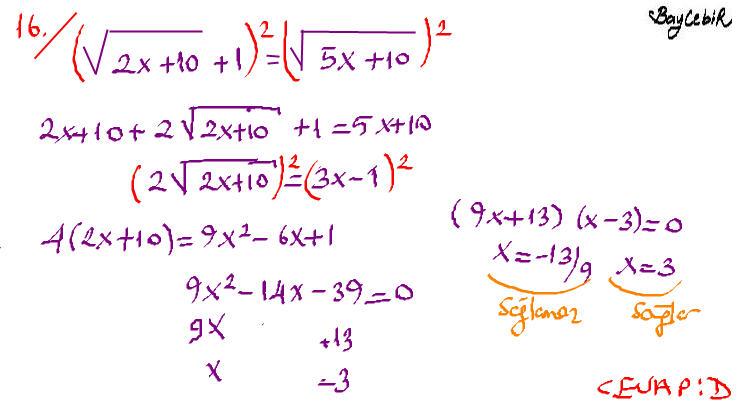 BayCebiR
16./ (√(2x+10) + 1)² = (√(5x+10))²
2x+10 + 2√(2x+10) + 1 = 5x+10
(2√(2x+10))² = (3x-1)²
4(2x+10) = 9x² - 6x + 1
9x² - 14x - 39 = 0
9x +13
x -3
(9x+13) (x-3) = 0
x = -13/9 x = 3
Sağlamaz Sağlar
CEVAP : D